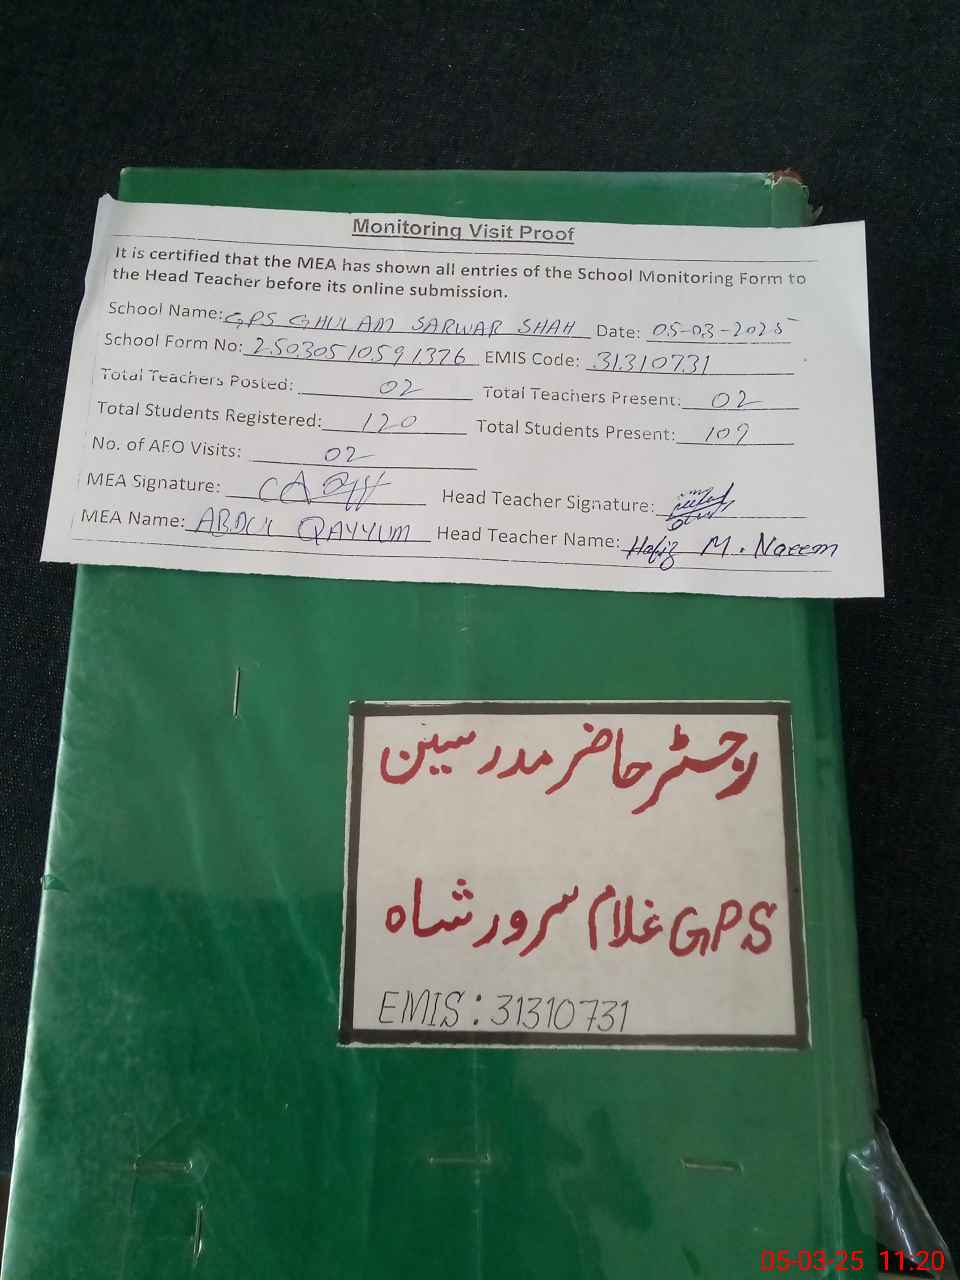 Monitoring Visit Proof
It is certified that the MEA has shown all entries of the School Monitoring Form to
the Head Teacher before its online submission.
School Name: GPS GHULAM SARWAR SHAH Date: 05-03-2025
School Form No: 25030510591376 EMIS Code: 31310731
Total Teachers Posted: 02 Total Teachers Present: 02
Total Students Registered: 120 Total Students Present: 109
No. of AEO Visits: 02
MEA Signature: Head Teacher Signature:
MEA Name: ABDUL QAYYUM Head Teacher Name: Hafiz M. Naeem
رجسٹر حاضر مدرسین
GPS غلام سرور شاہ
EMIS: 31310731
05-03-25 11:20